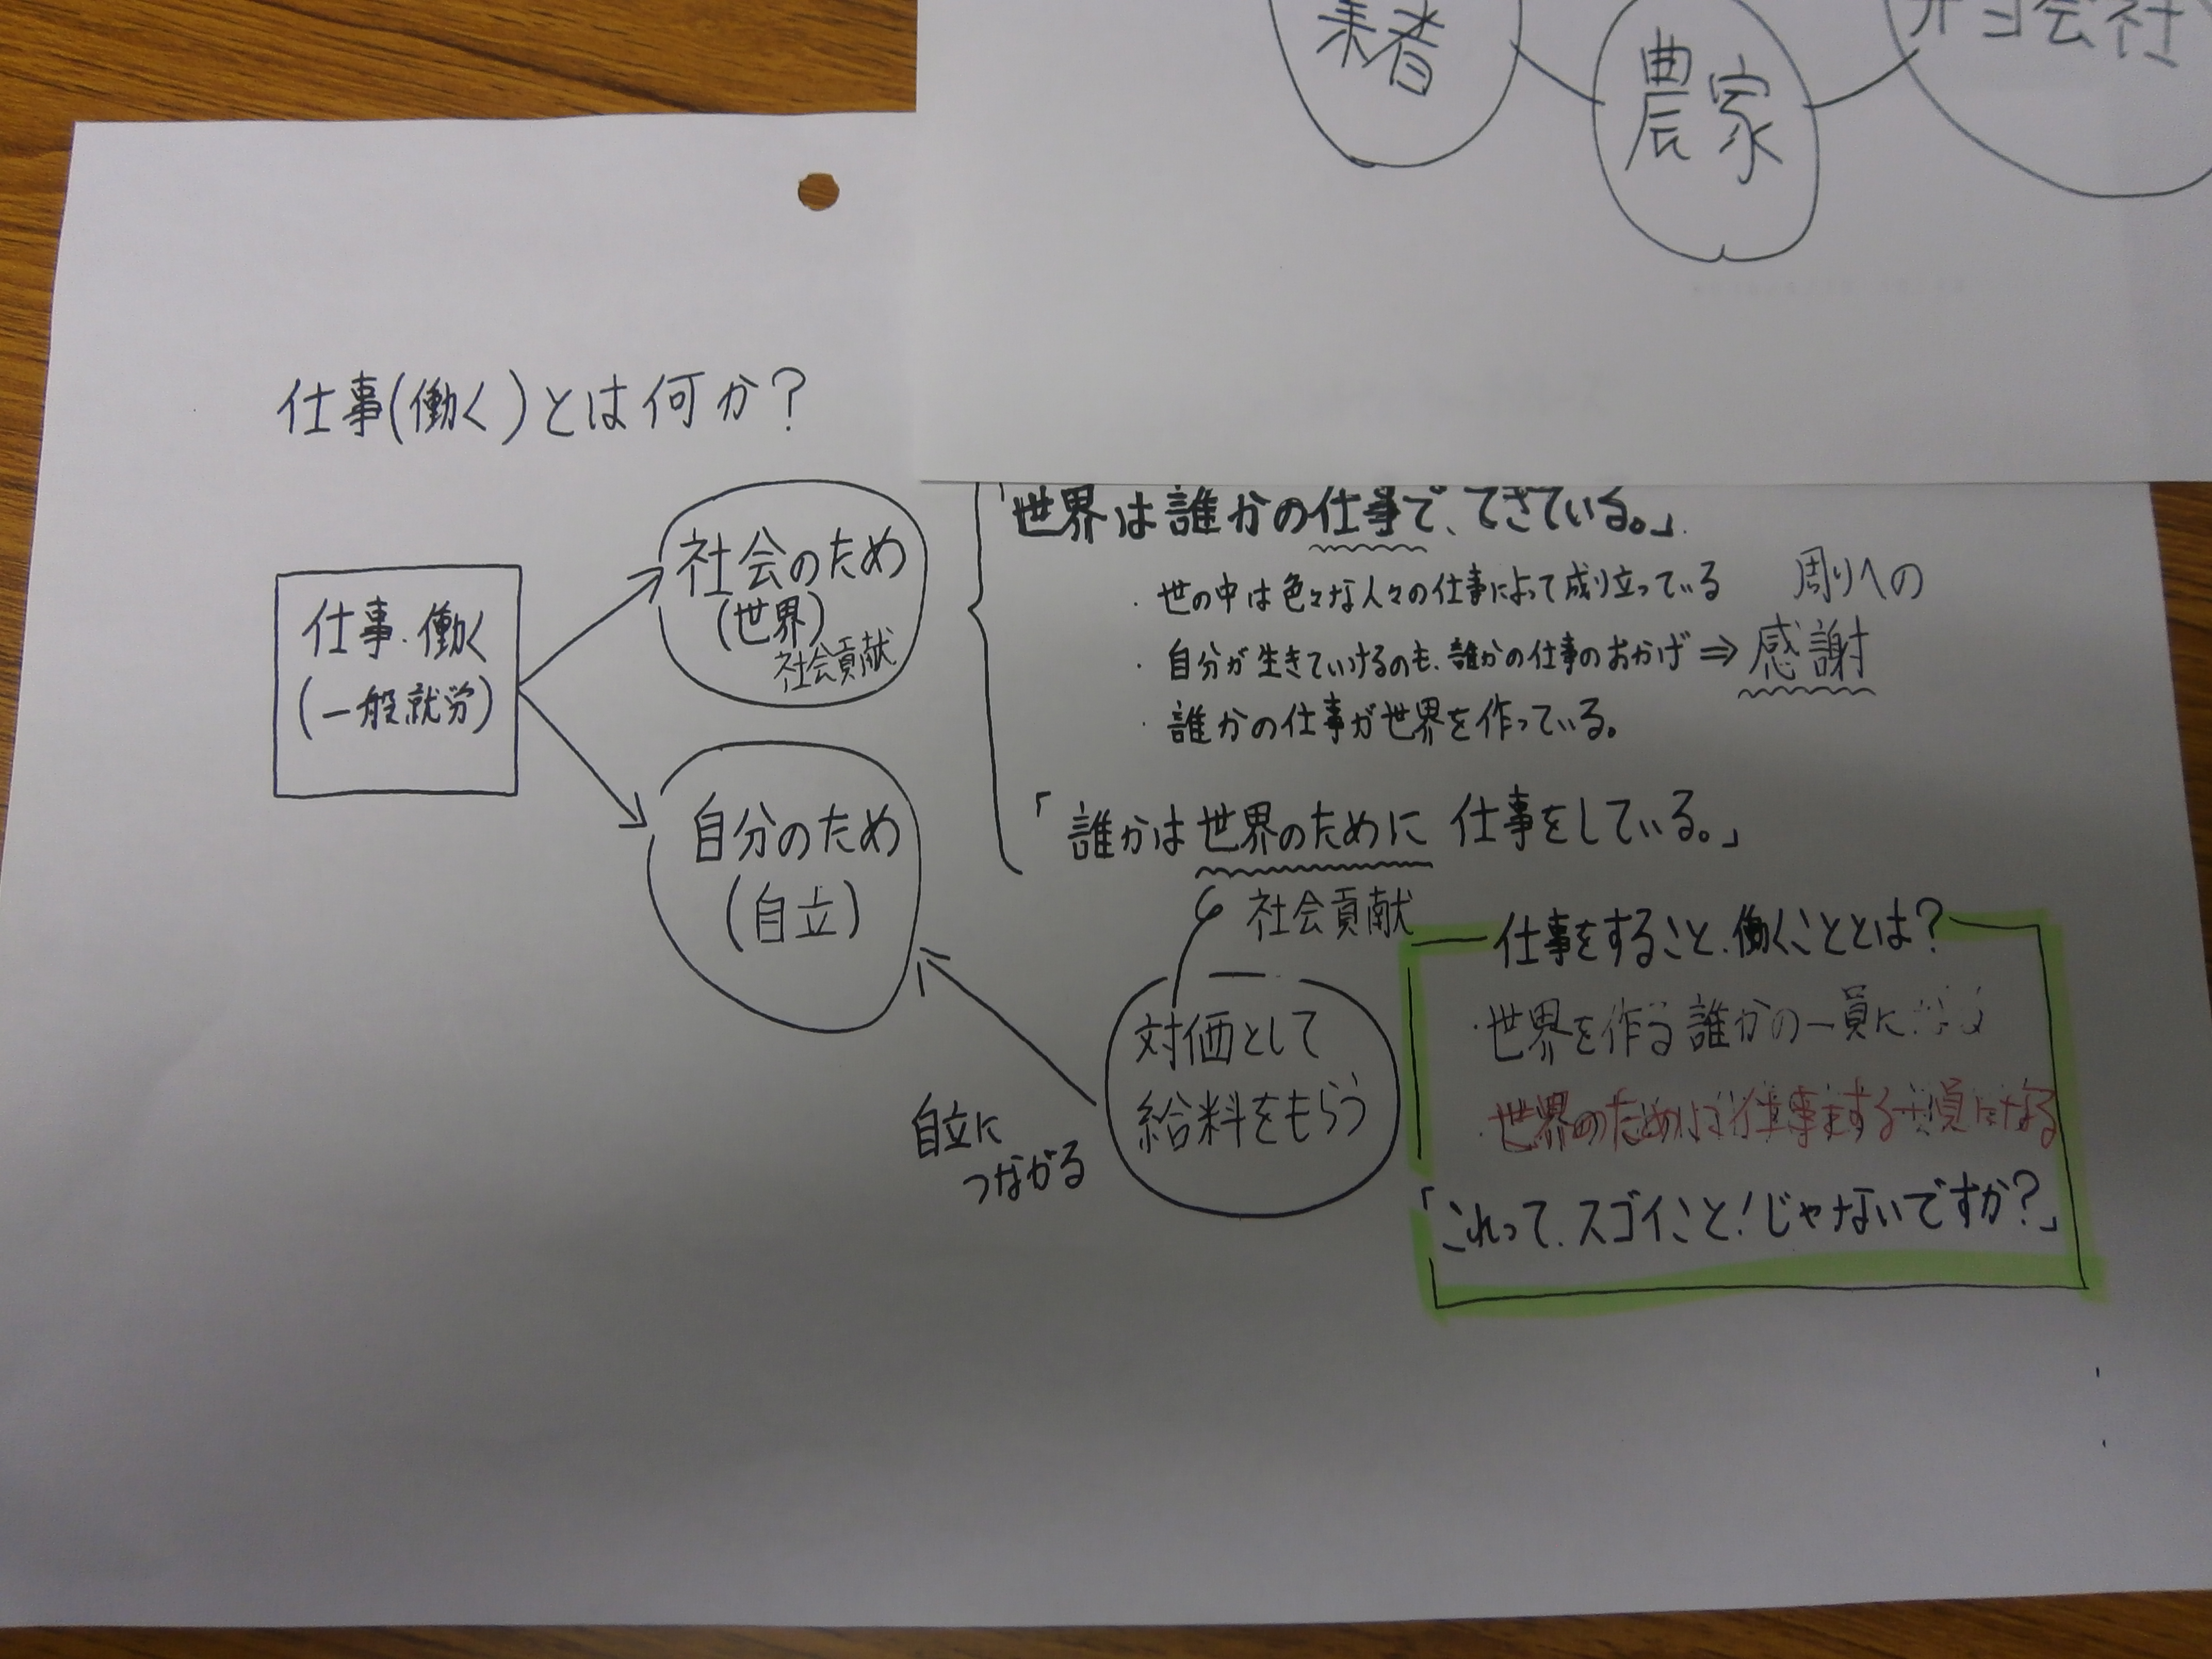 業者
農家
会社
仕事(働く)とは何か?
仕事・働く
(一般就労)
社会のため
(世界)
社会貢献
自分のため
(自立)
「世界は誰かの仕事で、できている。」
・世の中は色々な人々の仕事によって成り立っている
・自分が生きていけるのも、誰かの仕事のおかげ⇒
周りへの
感謝
・誰かの仕事が世界を作っている。
「誰かは世界のために仕事をしている。」
社会貢献
対価として
給料をもらう
自立に
つながる
仕事をすること、働くこととは?
・世界を作る誰かの一員になる
・世界のために仕事をする一員になる
「これって、スゴイこと!じゃないですか?」